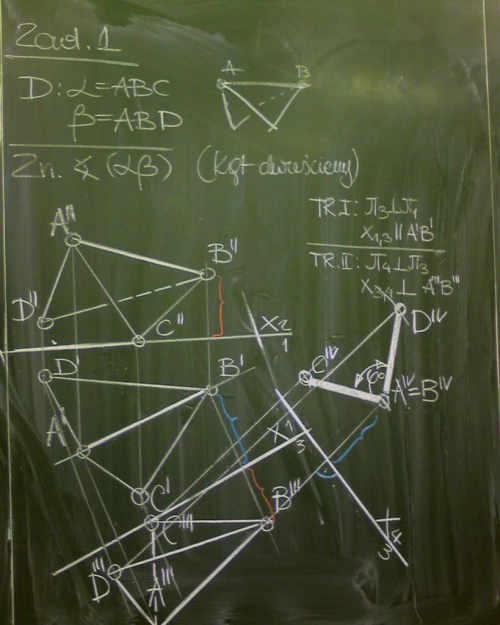 Zad. 1
D: α=ABC
β=ABD
Zn. ∢ (αβ) (Kąt dwuścienny)
A B
TR.I: π₃⊥π₁
X₁,₃ ∥ A'B'
TR.II: π₄⊥π₃
X₃,₄ ⊥ A'''B'''
A''
B''
D''
C''
X 2
1
D'
B'
A'
C'
X 1
3
D^IV
C^IV
φ°
A^IV=B^IV
C'''
B'''
D'''
A'''
4
3